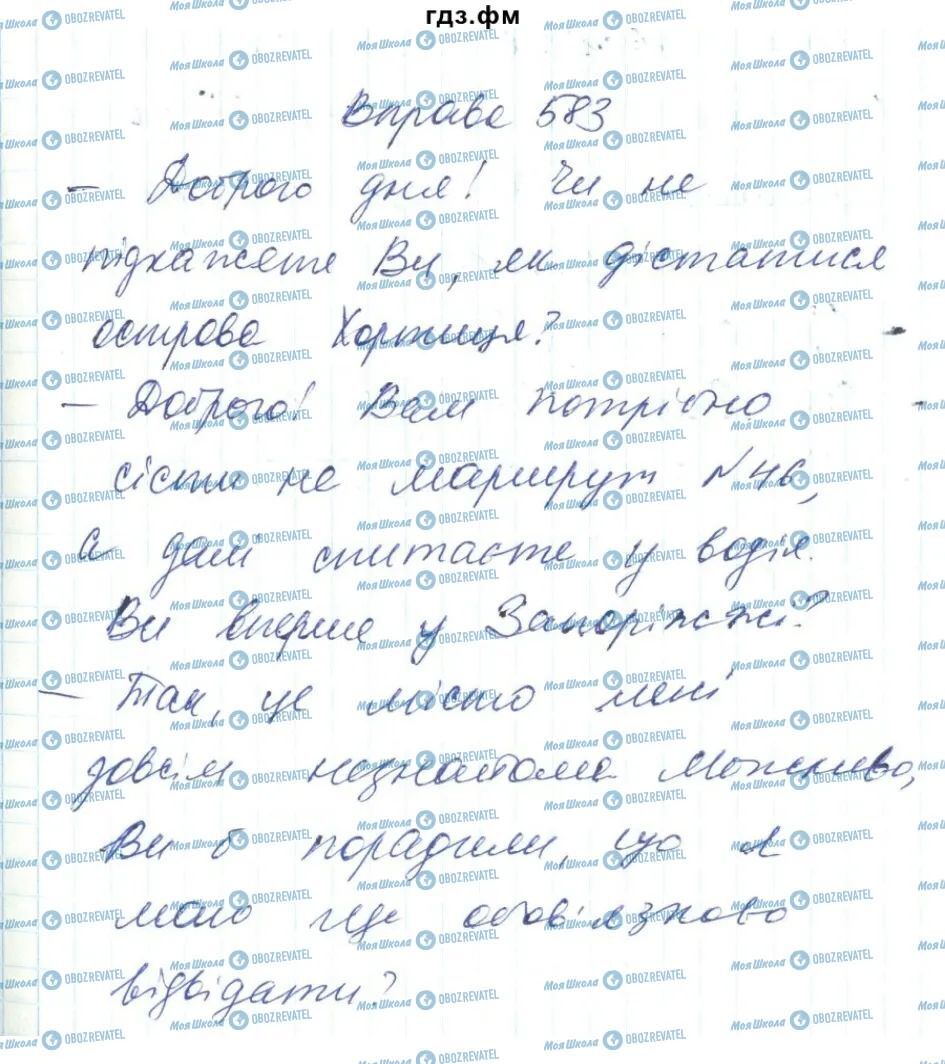 гдз.фм
Вправа 583
- Доброго дня! Чи не
підкажете Ви, як дістатися
острова Хортиця?
- Доброго! Вам потрібно
сісти на маршрут №46,
а далі спитаєте у водія.
Ви вперше у Запоріжжі?
- Так, це місто мені
зовсім незнайоме. Можливо,
Ви б порадили, що я
маю ще обов'язково
відвідати?
МояШкола OBOZREVATEL